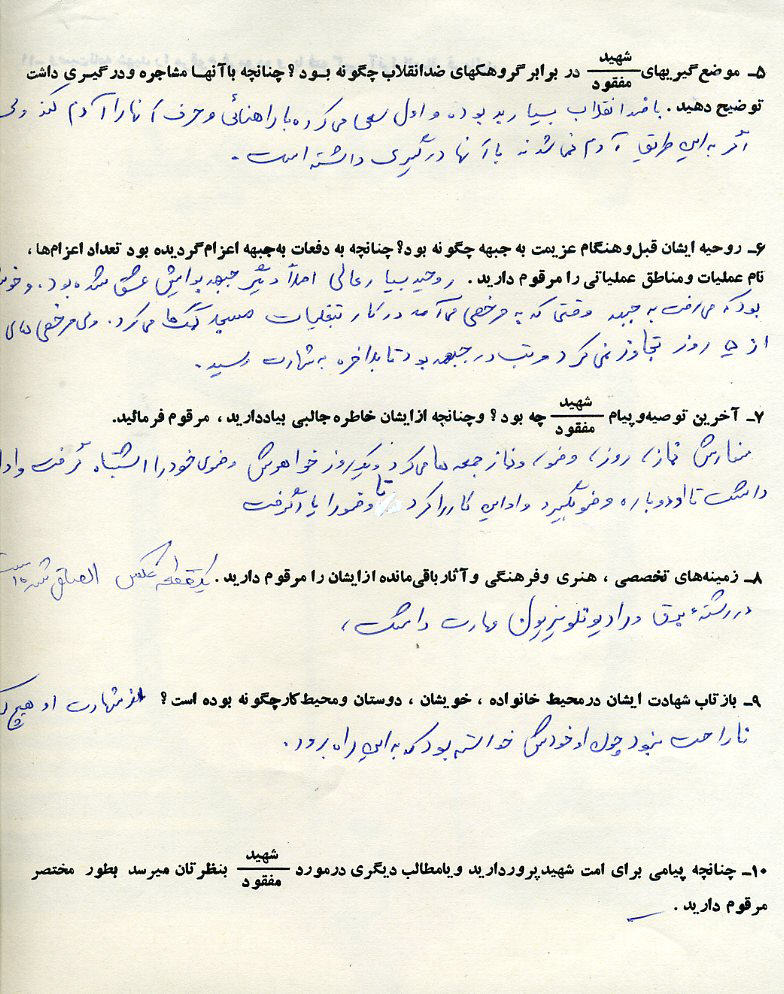 ۵ـ موضع‌گیریهای شهید/مفقود در برابر گروهکهای ضدانقلاب چگونه بود؟ چنانچه باآنها مشاجره ودرگیری داشت
توضیح دهید. با ضد انقلاب بسیار بد بوده و اول سعی می‌کرده با راهنمائی و حرف آنها را آدم کند ولی
اگر به این طریق آدم نمی‌شدند با آنها درگیری داشته است.
۶ـ روحیه ایشان قبل‌وهنگام عزیمت به جبهه چگونه بود؟ چنانچه به دفعات به‌جبهه اعزام‌گردیده بود تعداد اعزام‌ها،
نام عملیات ومناطق عملیاتی را مرقوم دارید. روحیه بسیار عالی اصلاً دیگر جبهه برایش عشق شده بود. و
بود که می‌رفت به جبهه وقتی که به مرخصی می‌آمد در کار تبلیغات مسجد کمک‌ها می‌کرد. ولی مرخصی‌های
از ۵ روز تجاوز نمی‌کرد مرتب در جبهه بود تا بالاخره به شهادت رسید.
۷ـ آخرین توصیه‌وپیام شهید/مفقود چه بود؟ وچنانچه ازایشان خاطره جالبی بیاددارید، مرقوم فرمائید.
سفارش نماز، روزه، وضو، ونماز جمعه ها می‌کرد و یکروز خواهرش وضوی خود را اشتباه گرفت و
داشت تا او دوباره وضو بگیرد و او این کار را کرد تا وضو را یاد گرفت
۸ـ زمینه‌های تخصصی، هنری وفرهنگی وآثارباقی‌مانده ازایشان را مرقوم دارید. یک قطعه عکس الصاق شده
در رشته برق و رادیو تلویزیون مهارت داشت،
۹ـ بازتاب شهادت ایشان درمحیط خانواده، خویشان، دوستان ومحیط‌کارچگونه بوده است؟ از شهادت او هیچ
ناراحت نبود چون او خودش خواسته بود که به این راه برود.
۱۰ـ چنانچه پیامی برای امت شهیدپروردارید ویامطالب دیگری درمورد شهید/مفقود بنظرتان میرسد بطور مختصر
مرقوم دارید.